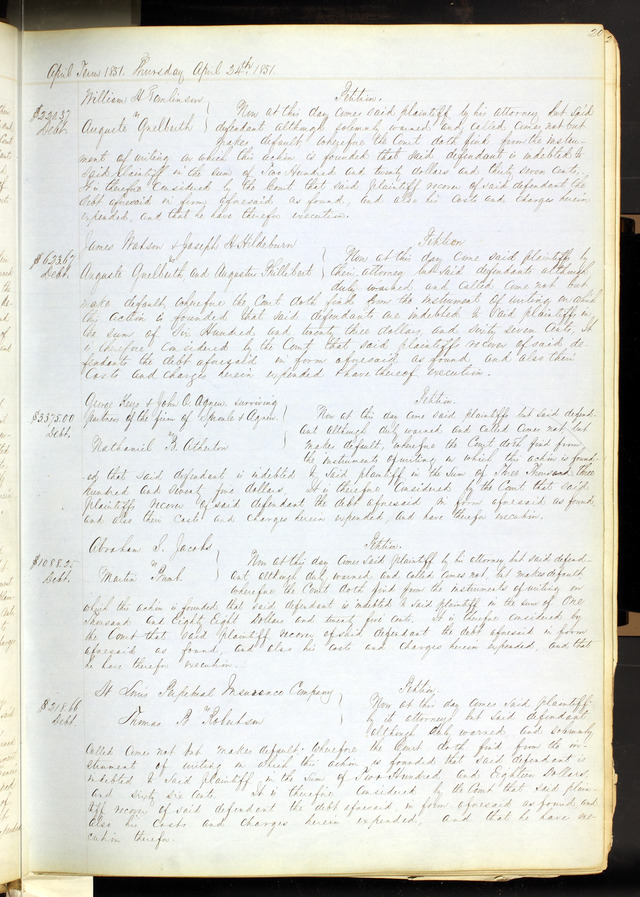 April Term 1851. Thursday April 24th 1851.
William H Tomlinson
vs
Auguste Guelbuth
Petition.
$220.37
Debt.
Now at this day comes said plaintiff by his attorney but said
defendant although solemnly warned and called comes not but
makes default wherefore the Court doth find from the instru-
ment of writing on which this action is founded that said defendant is indebted to
said plaintiff in the sum of Two Hundred and twenty dollars and thirty seven cents.
It is therefore Considered by the Court that said plaintiff recover of said defendant the
debt aforesaid in form aforesaid as found, and also his costs and charges herein
expended, and that he have therefor execution.
James Watson & Joseph H Hildeburn
vs
Auguste Guelbuth, and Augustus Phillibert
Petition
$623.67
Debt.
Now at this day come said plaintiffs by
their attorney but said defendants although
duly warned and called come not but
make default, wherefore the Court doth find from the instrument of writing on which
this action is founded that said defendants are indebted to said plaintiffs in
the sum of Six Hundred and twenty three dollars and sixty seven cents. It
is therefore Considered by the Court that said plaintiffs recover of said de-
fendants the debt aforesaid in form aforesaid as found and also their
costs and charges herein expended & have thereof execution.
& John O. Agnew surviving
partners of the firm of Sproule & Agnew.
vs
Nathaniel B. Atherton
Petition.
$3375.00
Debt.
Now at this day come said plaintiffs but said defend-
ant although duly warned and called comes not but
makes default, wherefore the Court doth find from
the instruments of writing on which this action is found-
ed that said defendant is indebted to said plaintiffs in the sum of Three Thousand three
hundred and seventy five dollars. It is therefore Considered by the Court that said
plaintiffs recover of said defendant the debt aforesaid in form aforesaid as found,
and also their costs and charges herein expended, and have therefor execution.
Abraham S. Jacobs
vs
Martin
Petition.
$1088.25
Debt.
Now at this day comes said plaintiff by his attorney but said defend-
ant although duly warned and called comes not, but makes default
wherefore the Court doth find from the instruments of writing on
which this action is founded that said defendant is indebted to said plaintiff in the sum of One
Thousand and Eighty Eight Dollars and twenty five cents. It is therefore considered by
the Court that said plaintiff recover of said defendant the debt aforesaid in form
aforesaid as found, and also his costs and charges herein expended, and that
he have therefor execution.
St Louis Perpetual Insurance Company
vs
Thomas B Robertson
Petition.
$218.66
Debt
Now at this day comes said plaintiff
by its attorneys but said defendant
although duly warned, and solemnly
called comes not but makes default. wherefore the Court doth find from the in-
strument of writing on which this action is founded that said defendant is
indebted to said plaintiff in the sum of Two Hundred and Eighteen Dollars
and sixty six cents. It is therefore considered by the Court that said plain-
tiff recover of said defendant the debt aforesaid, in form aforesaid as found, and
also his costs and charges herein expended, and that he have exe-
cution therefor.